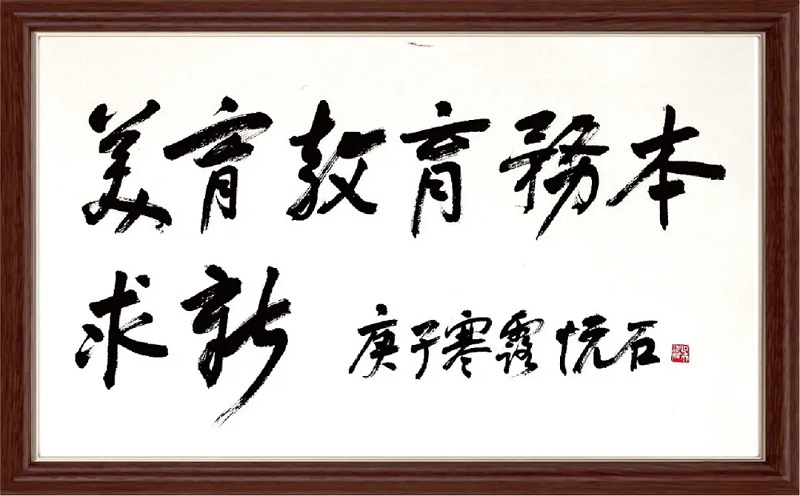 美育教育務本
求新
庚子寒露 忱石